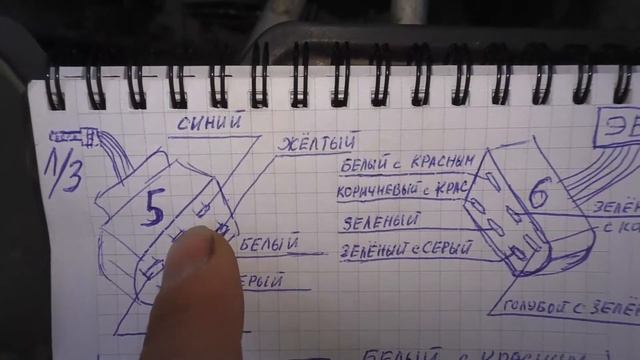 СИНИЙ
ЖЁЛТЫЙ
Л/З
5
БЕЛЫЙ
БЕЛЫЙ с КРАСНЫМ
КОРИЧНЕВЫЙ с КРАС
ЗЕЛЕНЫЙ
ЗЕЛЁНЫЙ с СЕРЫЙ
6
ЗЕЛЁН
с КО
ГОЛУБОЙ с ЗЕЛЕН
БЕЛЫЙ с КРАСНЫМ